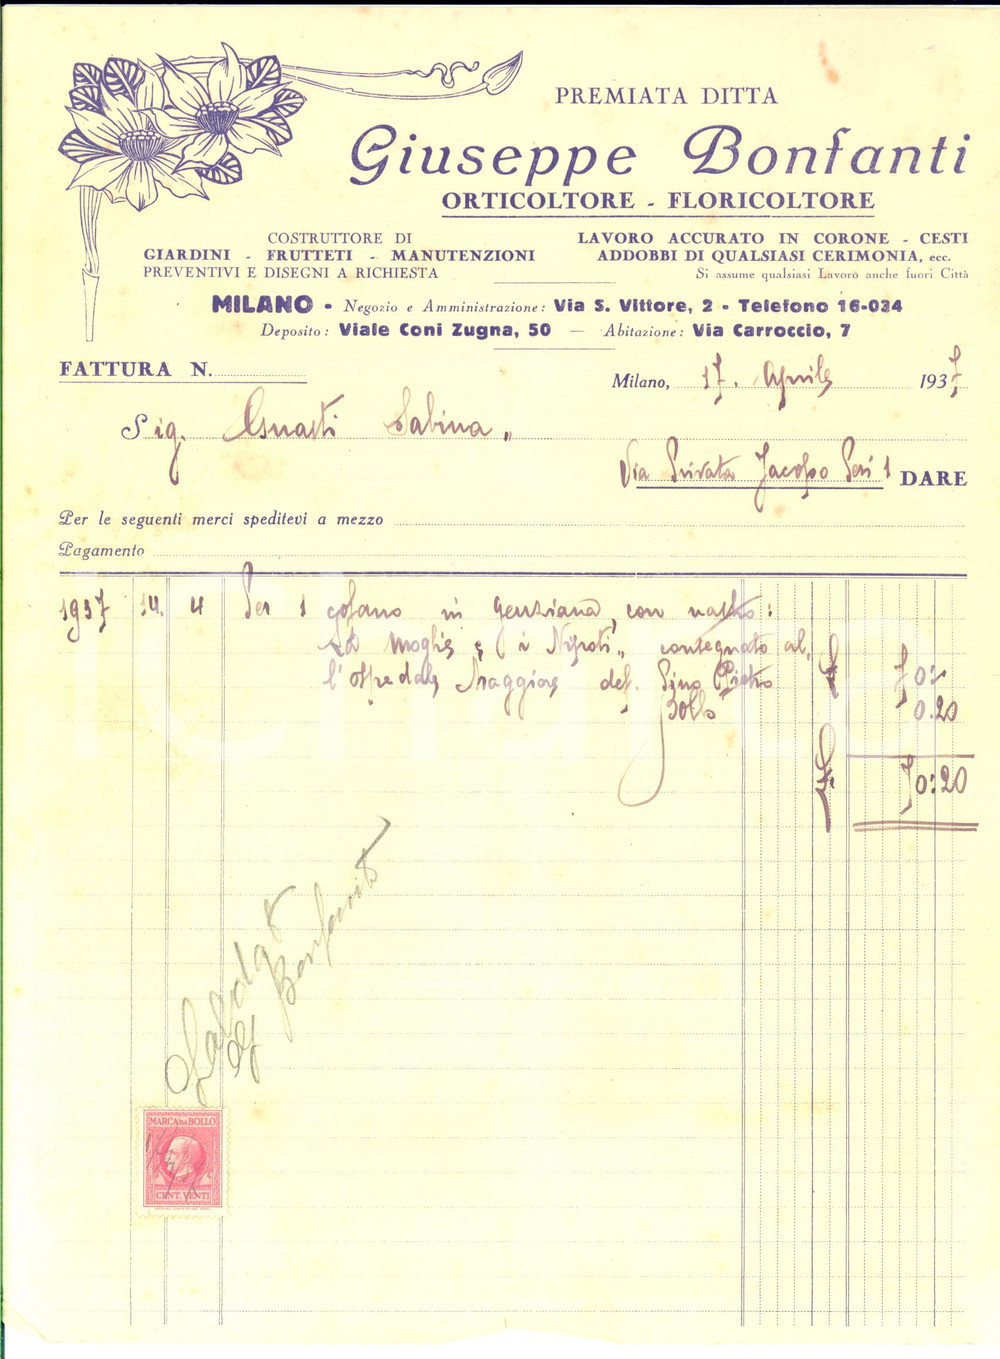 PREMIATA DITTA
Giuseppe Bonfanti
ORTICOLTORE - FLORICOLTORE
COSTRUTTORE DI
GIARDINI - FRUTTETI - MANUTENZIONI
PREVENTIVI E DISEGNI A RICHIESTA
LAVORO ACCURATO IN CORONE - CESTI
ADDOBBI DI QUALSIASI CERIMONIA, ecc.
Si assume qualsiasi Lavoro anche fuori Città
MILANO - Negozio e Amministrazione: Via S. Vittore, 2 - Telefono 16-034
Deposito: Viale Coni Zugna, 50 — Abitazione: Via Carroccio, 7
FATTURA N.
Milano, 17. Aprile 1937
Sig. Guasti Sabina „
Via Privata Jacopo Peri 1 DARE
Per le seguenti merci speditevi a mezzo
Pagamento
1937 14. 4 Per 1 cofano in genziana, con nastro:
La Moglie e i Nipoti „ consegnato al,
l'ospedale Maggiore def. Pino Pietro £ 70:-
Bollo 0.20
£ 70:20
Saldato
Bonfanti
MARCA DA BOLLO
CENT. VENTI